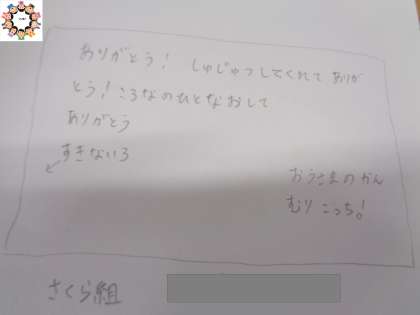 ありがとう! しゅじゅつしてくれて ありが
とう!ころなのひとなおして
ありがとう
すきないろ
おうさまのかん
むり こっち!
さくら組